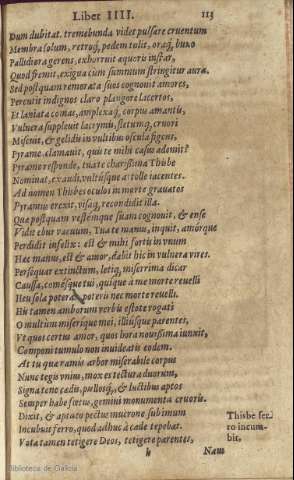 Liber IIII. 113
Dum dubitat. tremebunda videt pulsare cruentum
Membra solum, retroq́; pedem tulit, oraq́; buxo
Pallidiora gerens, exhorruit æquoris instar,
Quod fremit, exigua cùm summum stringitur aura.
Sed postquam remorata suos cognouit amores,
Percutit indignos claro plangore lacertos,
Et laniata comas, amplexaq́; corpus amantis,
Vulnera suppleuit lacrymis, fletumq́; cruori
Miscuit, & gelidis in vultibus oscula figens,
Pyrame clamauit, quis te mihi casus ademit?
Pyrame responde, tua te charissima Thisbe
Nominat, exaudi, vultusque attolle iacentes.
Ad nomen Thisbes oculos in morte grauatos
Pyramus erexit, visaq́; recondidit illa.
Quæ postquam vestemque suam cognouit, & ense
Vidit ebur vacuum, Tua te manus, inquit, amorque
Perdidit infelix: est & mihi fortis in vnum
Hæc manus, est & amor, dabit hic in vulnera vires.
Persequar extinctum, letiq́; miserrima dicar
Caussa, comesque tui, quique à me morte reuelli
Heu sola poteras, poteris nec morte reuelli.
His tamen amborum verbis estote rogati
O multùm miserique mei, illiusque parentes,
Vt quos certus amor, quos hora nouissima iunxit,
Componi tumulo non inuideatis eodem.
At tu quæ ramis arbor miserabile corpus
Nunc tegis vnius, mox es tectura duorum,
Signa tene cædis, pullosq́; & luctibus aptos
Semper habe fœtus, gemini monumenta cruoris.
Dixit, & aptato pectus mucrone sub imum
Incubuit ferro, quod adhuc à cæde tepebat.
Vota tamen tetigere Deos, tetigere parentes,
Thisbe fer-
ro incum-
bit.
h Nam
Biblioteca de Galicia